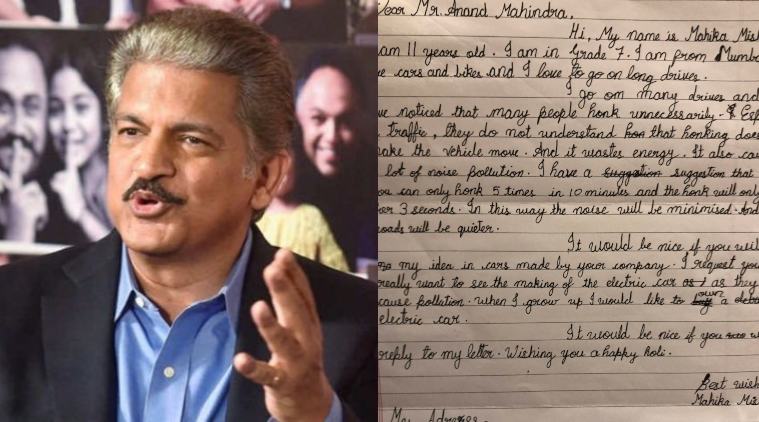 Dear Mr. Anand Mahindra,
Hi, My name is Mahika Mish
am 11 years old. I am in Grade 7. I am from Mumba
e cars and bikes and I love to go on long drives.
I go on many drives and
ve noticed that many people honk unnecessarily. Esp
traffic, they do not understand that honking does
ake the vehicle move. And it wastes energy. It also cau
lot of noise pollution. I have a suggestion suggestion that
ou can only honk 5 times in 10 minutes and the honk will only
or 3 seconds. In this way the noise will be minimised. And
oads will be quieter.
It would be nice if you will
my idea in cars made by your company. I request you
really want to see the making of the electric car as as they
cause pollution. When I grow up I would like to own a
electric car.
It would be nice if you
reply to my letter. Wishing you a happy holi.
Best wish
Mahika Mis
My Address